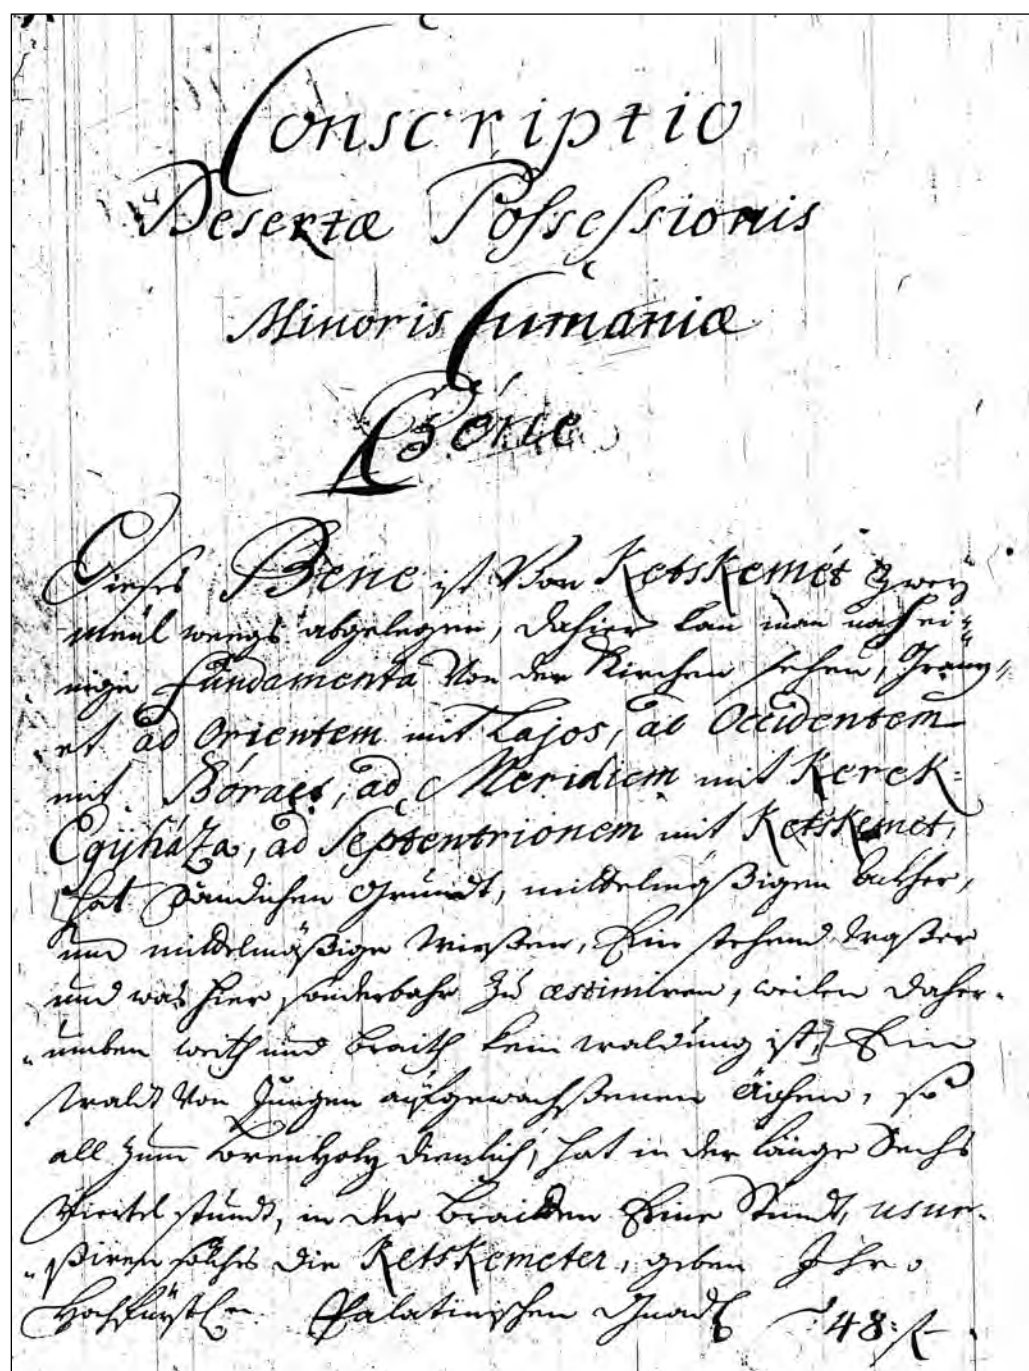 Conscriptio
Desertæ Possessionis
Minoris Cumaniæ
Bene
Dieses Bene ist Von Ketskemét Zweÿ
meül weegs abgelegen, dahier kan man noch ei=
nige Fundamenta Von der Kirchen sehen, Gränz„
et ad Orientem mit Lajos, ad Occidentem
mit Boracs, ad Meridiem mit Kerek=
Egÿháza, ad Septentrionem mit Ketskemet,
hat Sandichen Grundt, mittelmäßigen
und mittelmäßige Wießen, Ein stehend Waßer
und was hier sonderbahr Zu æstimiren, weilen daher=
umben weith und braith kein Waldung ist, Ein
Waldt Von Jungen aufgewachßenen Aichen, so
all zum brenHolz dienlich, hat in der länge Sechs
Viertel stundt, in der braitten Eine Stundt, usur=
piren solches die Ketskemeter, geben Ihro
HochFürstl. Palatinischen Gnad 48